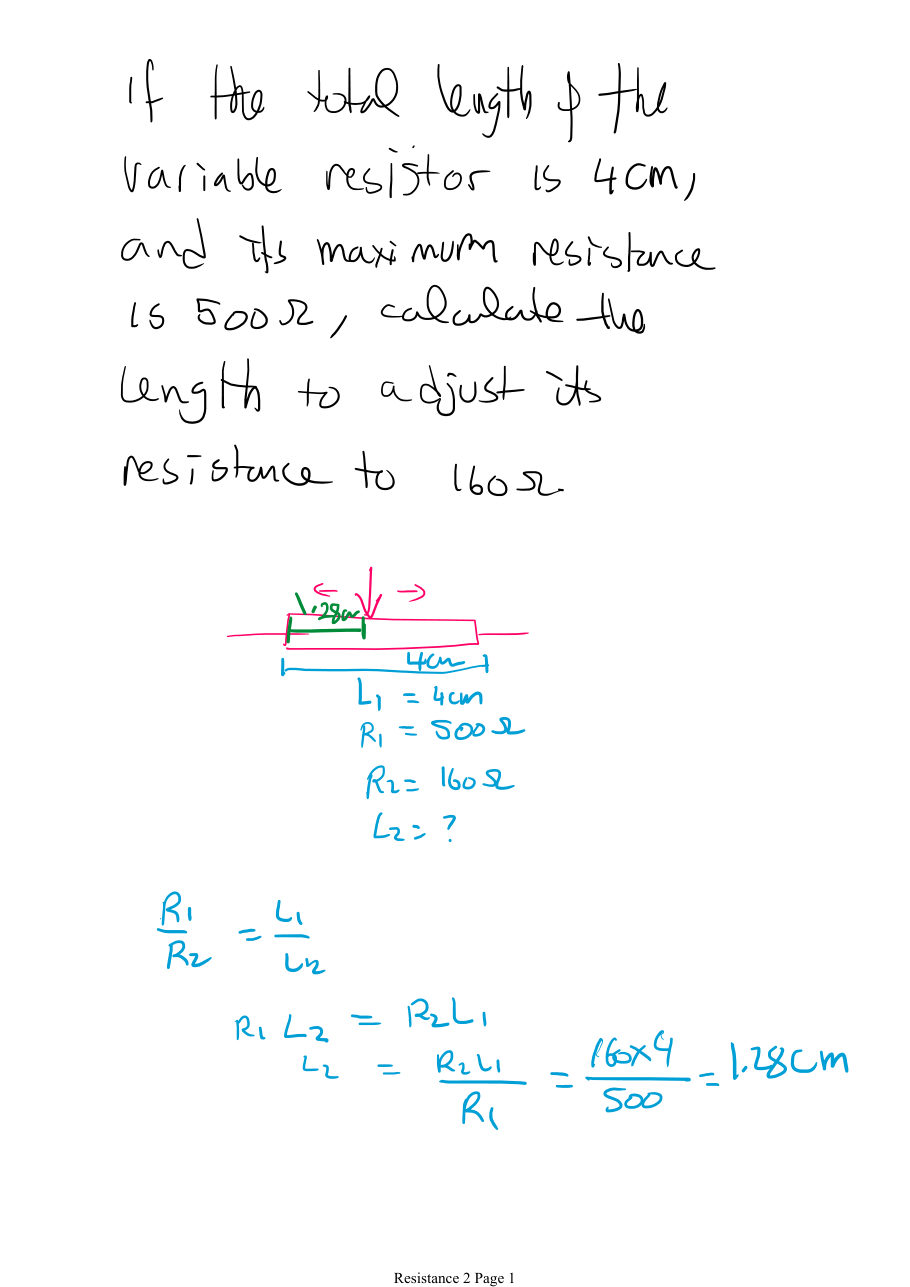 If the total length of the
variable resistor is 4cm,
and its maximum resistance
is 500Ω, calculate the
length to adjust its
resistance to 160Ω
← →
1.28cm
4cm
L₁ = 4cm
R₁ = 500Ω
R₂ = 160Ω
L₂ = ?
R₁/R₂ = L₁/L₂
R₁ L₂ = R₂L₁
L₂ = R₂L₁/R₁ = 160×4/500 = 1.28cm
Resistance 2 Page 1